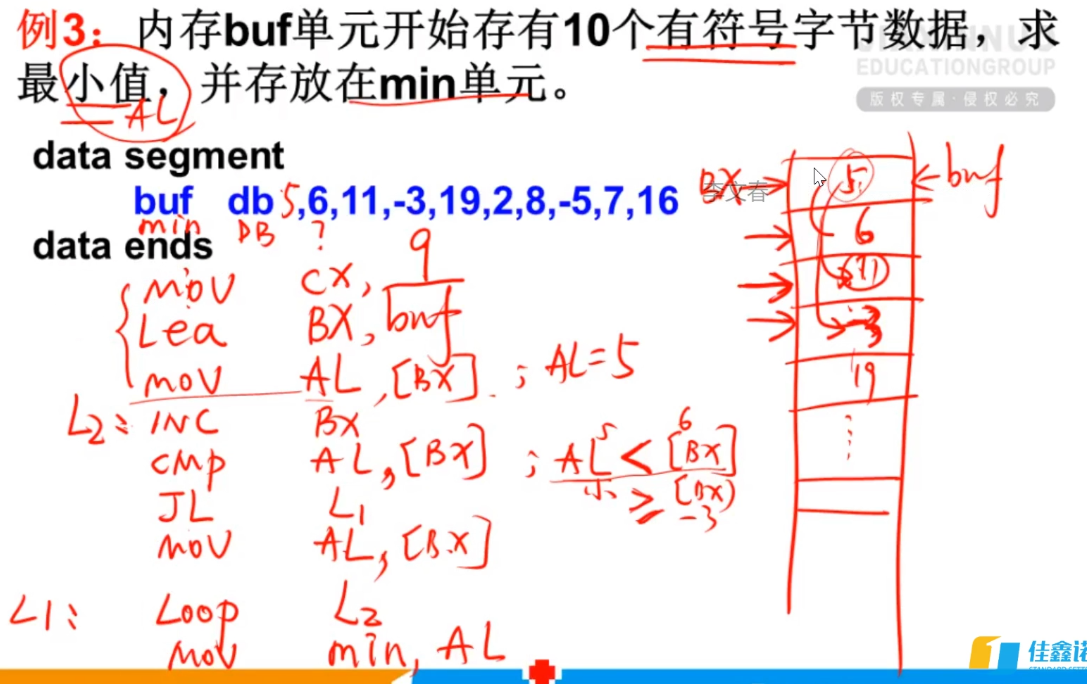 例3：内存buf单元开始存有10个有符号字节数据，求
最小值，并存放在min单元。
EDUCATIONGROUP
版权专属·侵权必究
AL
data segment
buf db 5,6,11,-3,19,2,8,-5,7,16
min DB ?
data ends
MOV CX, 9
Lea BX, buf
MOV AL, [BX] ; AL=5
L2: INC BX
CMP AL, [BX] ; AL < [BX]
5 6
小 ≥ [BX]
-3
JL L1
MOV AL, [BX]
L1: Loop L2
MOV min, AL
BX
李文春
buf
5
6
11
-3
19
佳鑫诺